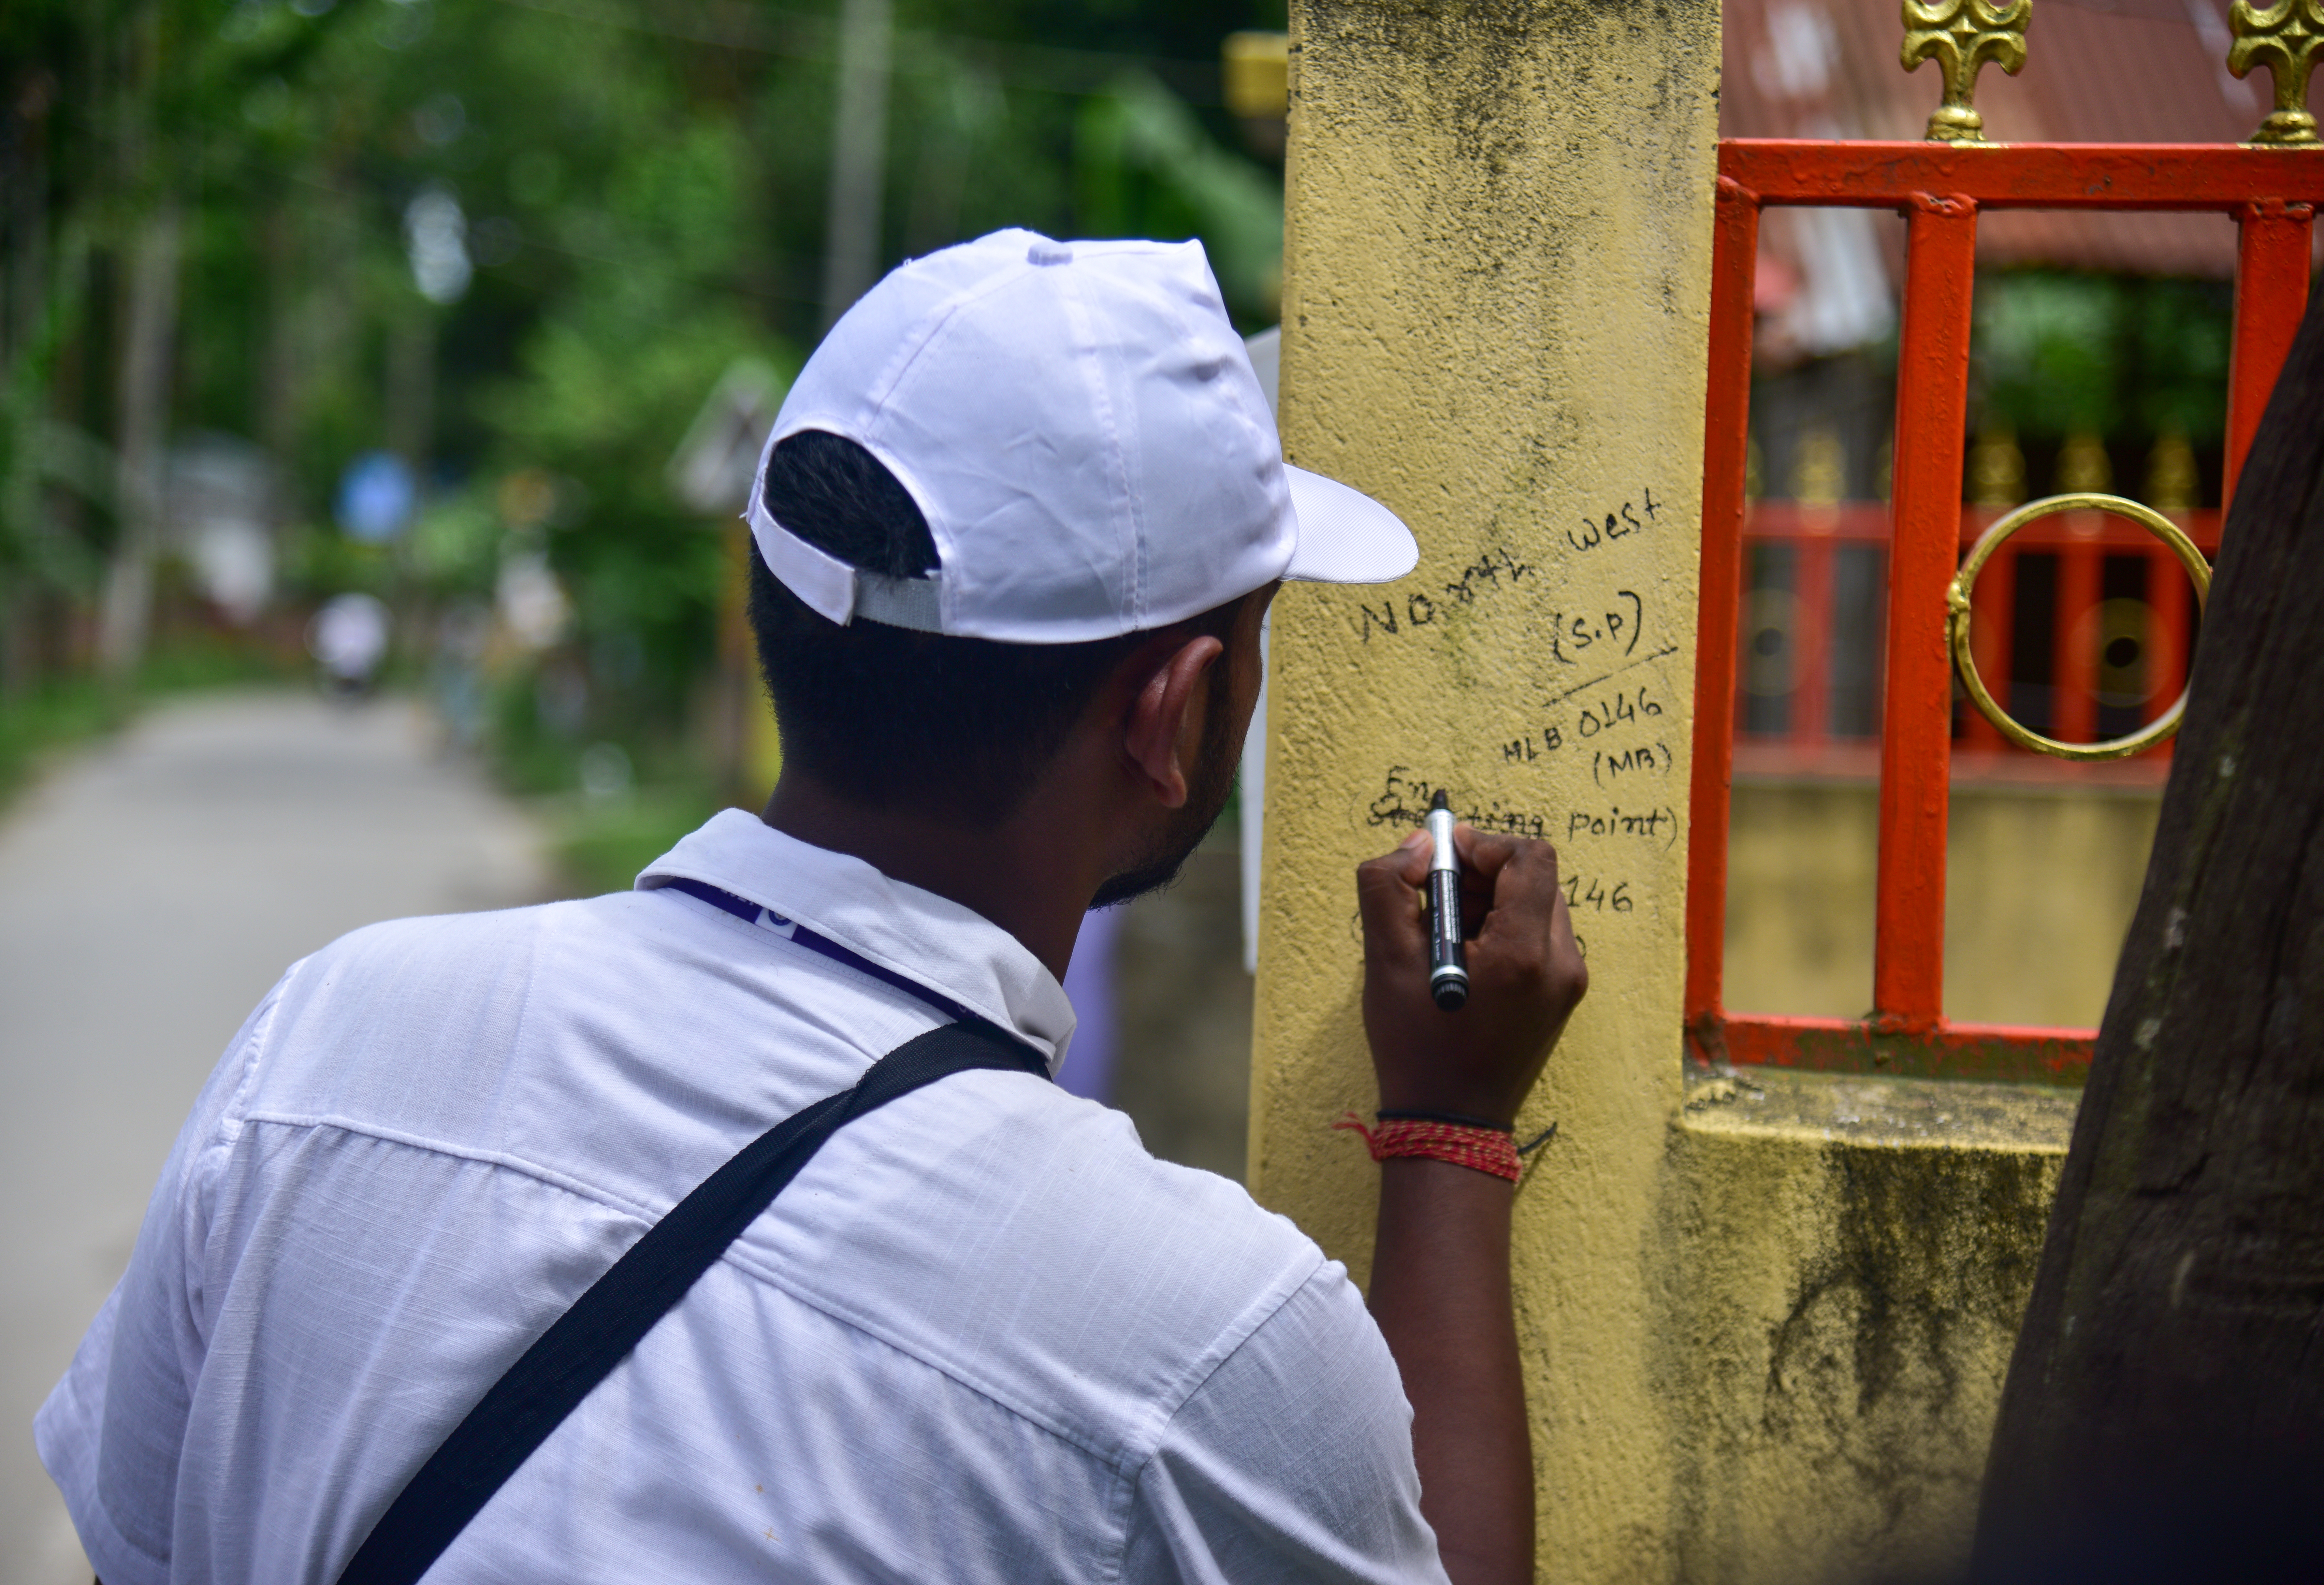 North West
(S.P)
MLB 0146
(MB)
En
(Starting point)
146